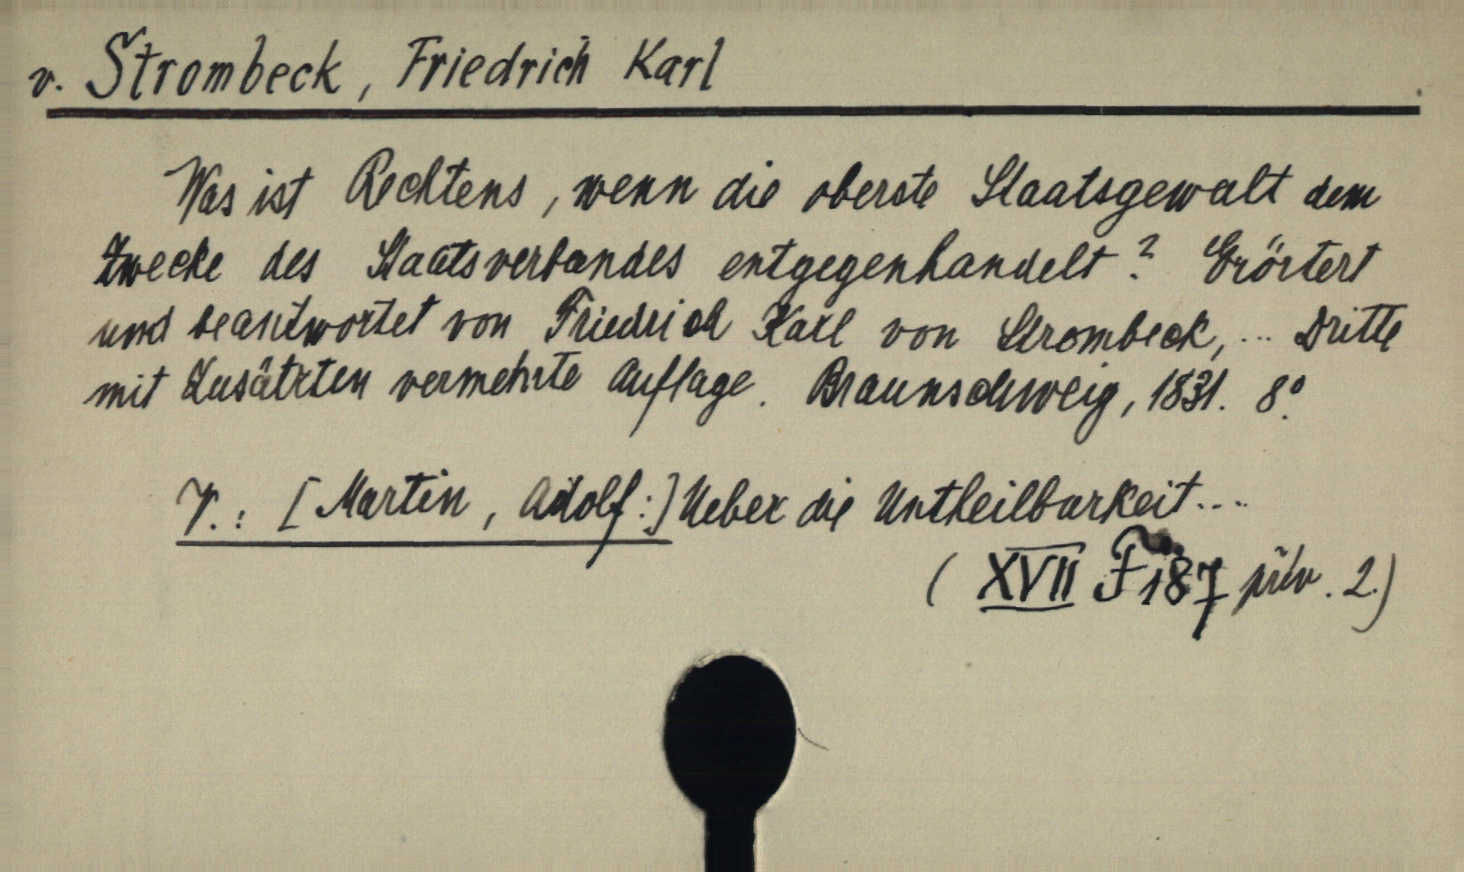 v. Strombeck, Friedrich Karl
Was ist Rechtens, wenn die oberste Staatsgewalt dem
Zwecke des Staatsverbandes entgegenhandelt? Erörtert
und beantwortet von Friedrich Karl von Strombeck, ... Dritte
mit Zusätzten vermehrte Auflage. Braunschweig, 1831. 8º.
V.: [Martin, Adolf:] Ueber die Untheilbarkeit....
(XVII F 187 přív. 2.)